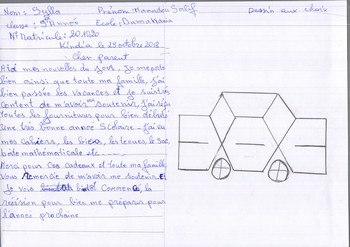 Nom: Sylla Prénom Mamadou Salif
Dessin aux choix
classe: 9e Année Ecole: Damakania
N° Matricule: 20.1920
Kindia le 29 octobre 2018
Cher parent
A toi mes nouvelles du jour, Je me porte
bien ainsi que toute ma famille, j'ai
bien passée les vacances et je suis très
content de m'avoir soutenir, j'ai reçu
toutes les fournitures pour bien débuté
Une très bonne année scolaire. J'ai eu
mes cahiers, les bics, les tenues, le sac,
boîte mathématicale etc
Merci pour ces cadeaux et toute ma famille
Vous remercie de m'avoir me soutenir et
Je vais bientôt commencer la
révision pour bien me préparer pour
l'année prochaine